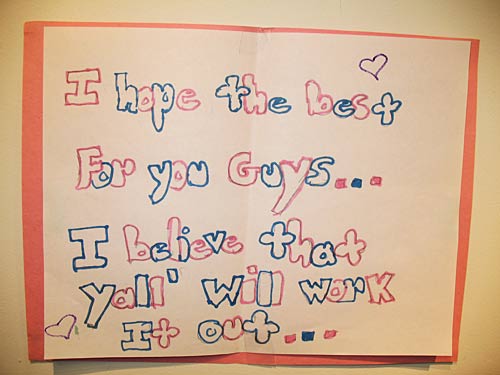 I hope the best
For you Guys...
I believe that
yall' will work
It out...